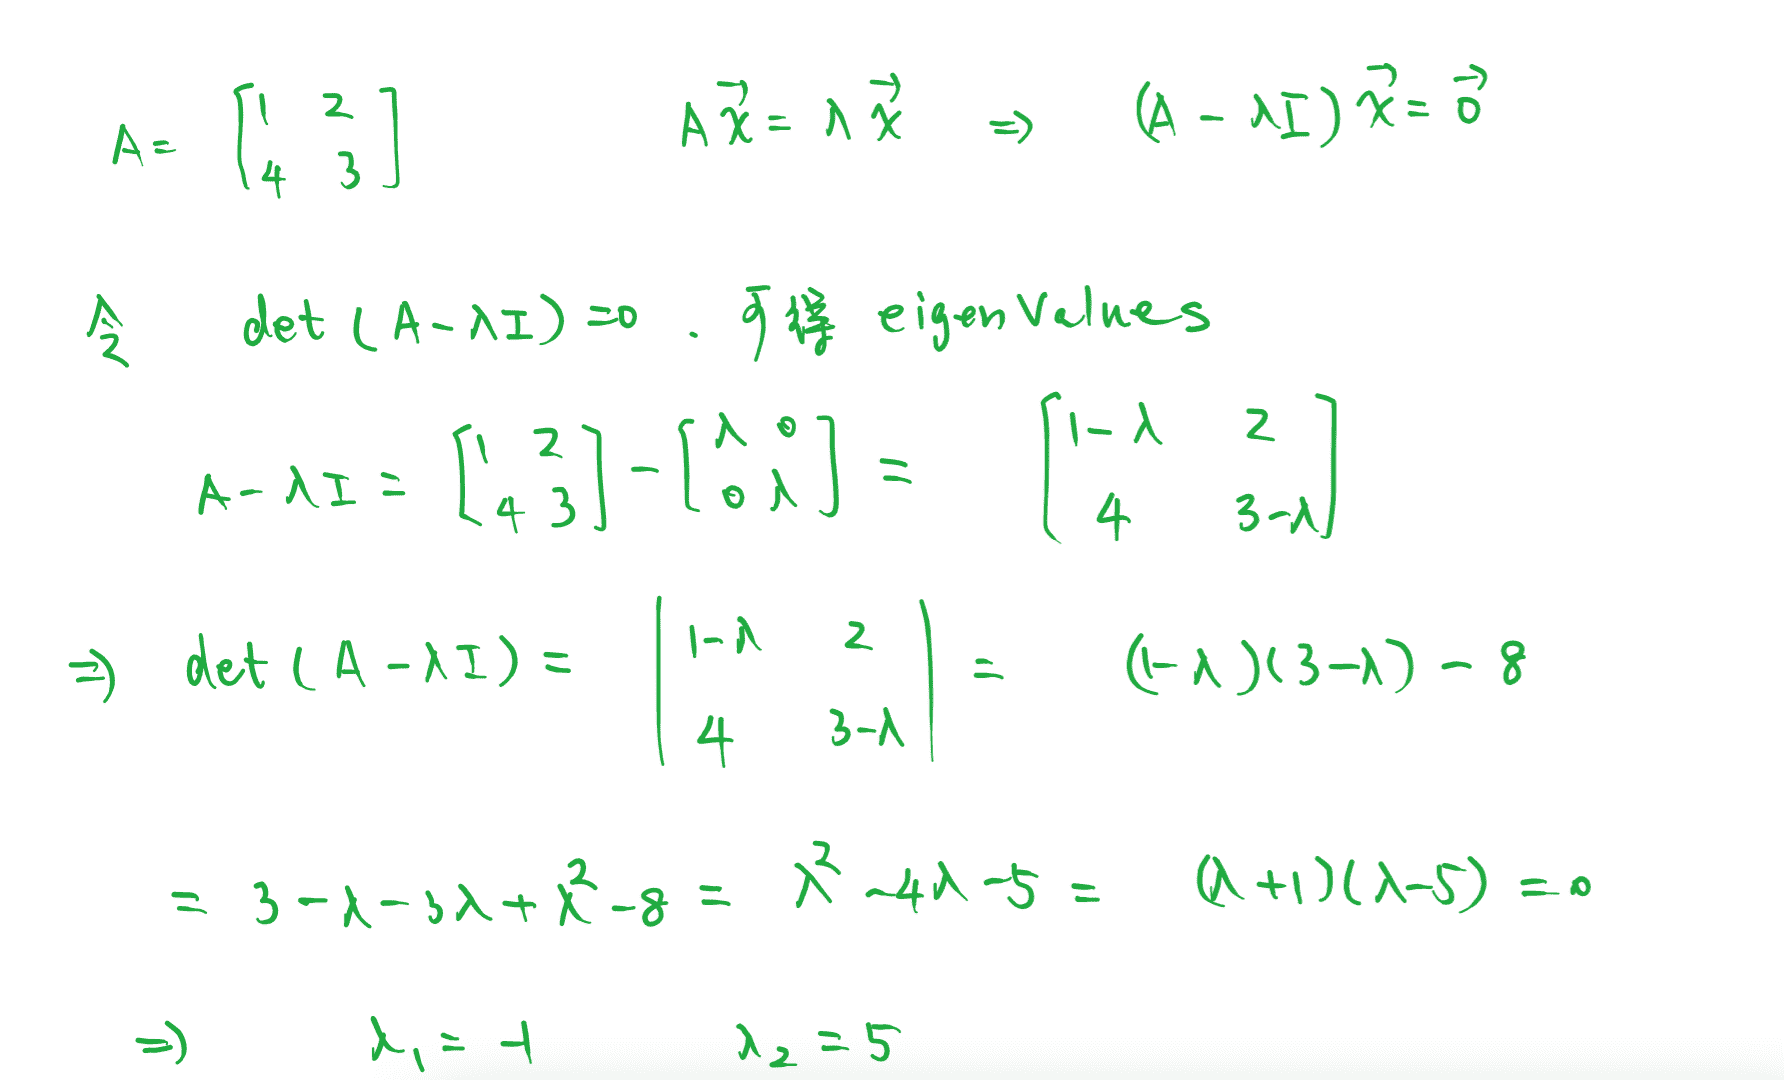 A = [1 2; 4 3]    A x⃗ = λ x⃗ ⇒ (A - λI) x⃗ = 0⃗
令 det (A - λI) = 0 . 可得 eigenvalues
A - λI = [1 2; 4 3] - [λ 0; 0 λ] = [1-λ 2; 4 3-λ]
⇒ det (A - λI) = |1-λ 2; 4 3-λ| = (1-λ)(3-λ) - 8
= 3 - λ - 3λ + λ² - 8 = λ² - 4λ - 5 = (λ+1)(λ-5) = 0
⇒ λ₁ = -1    λ₂ = 5